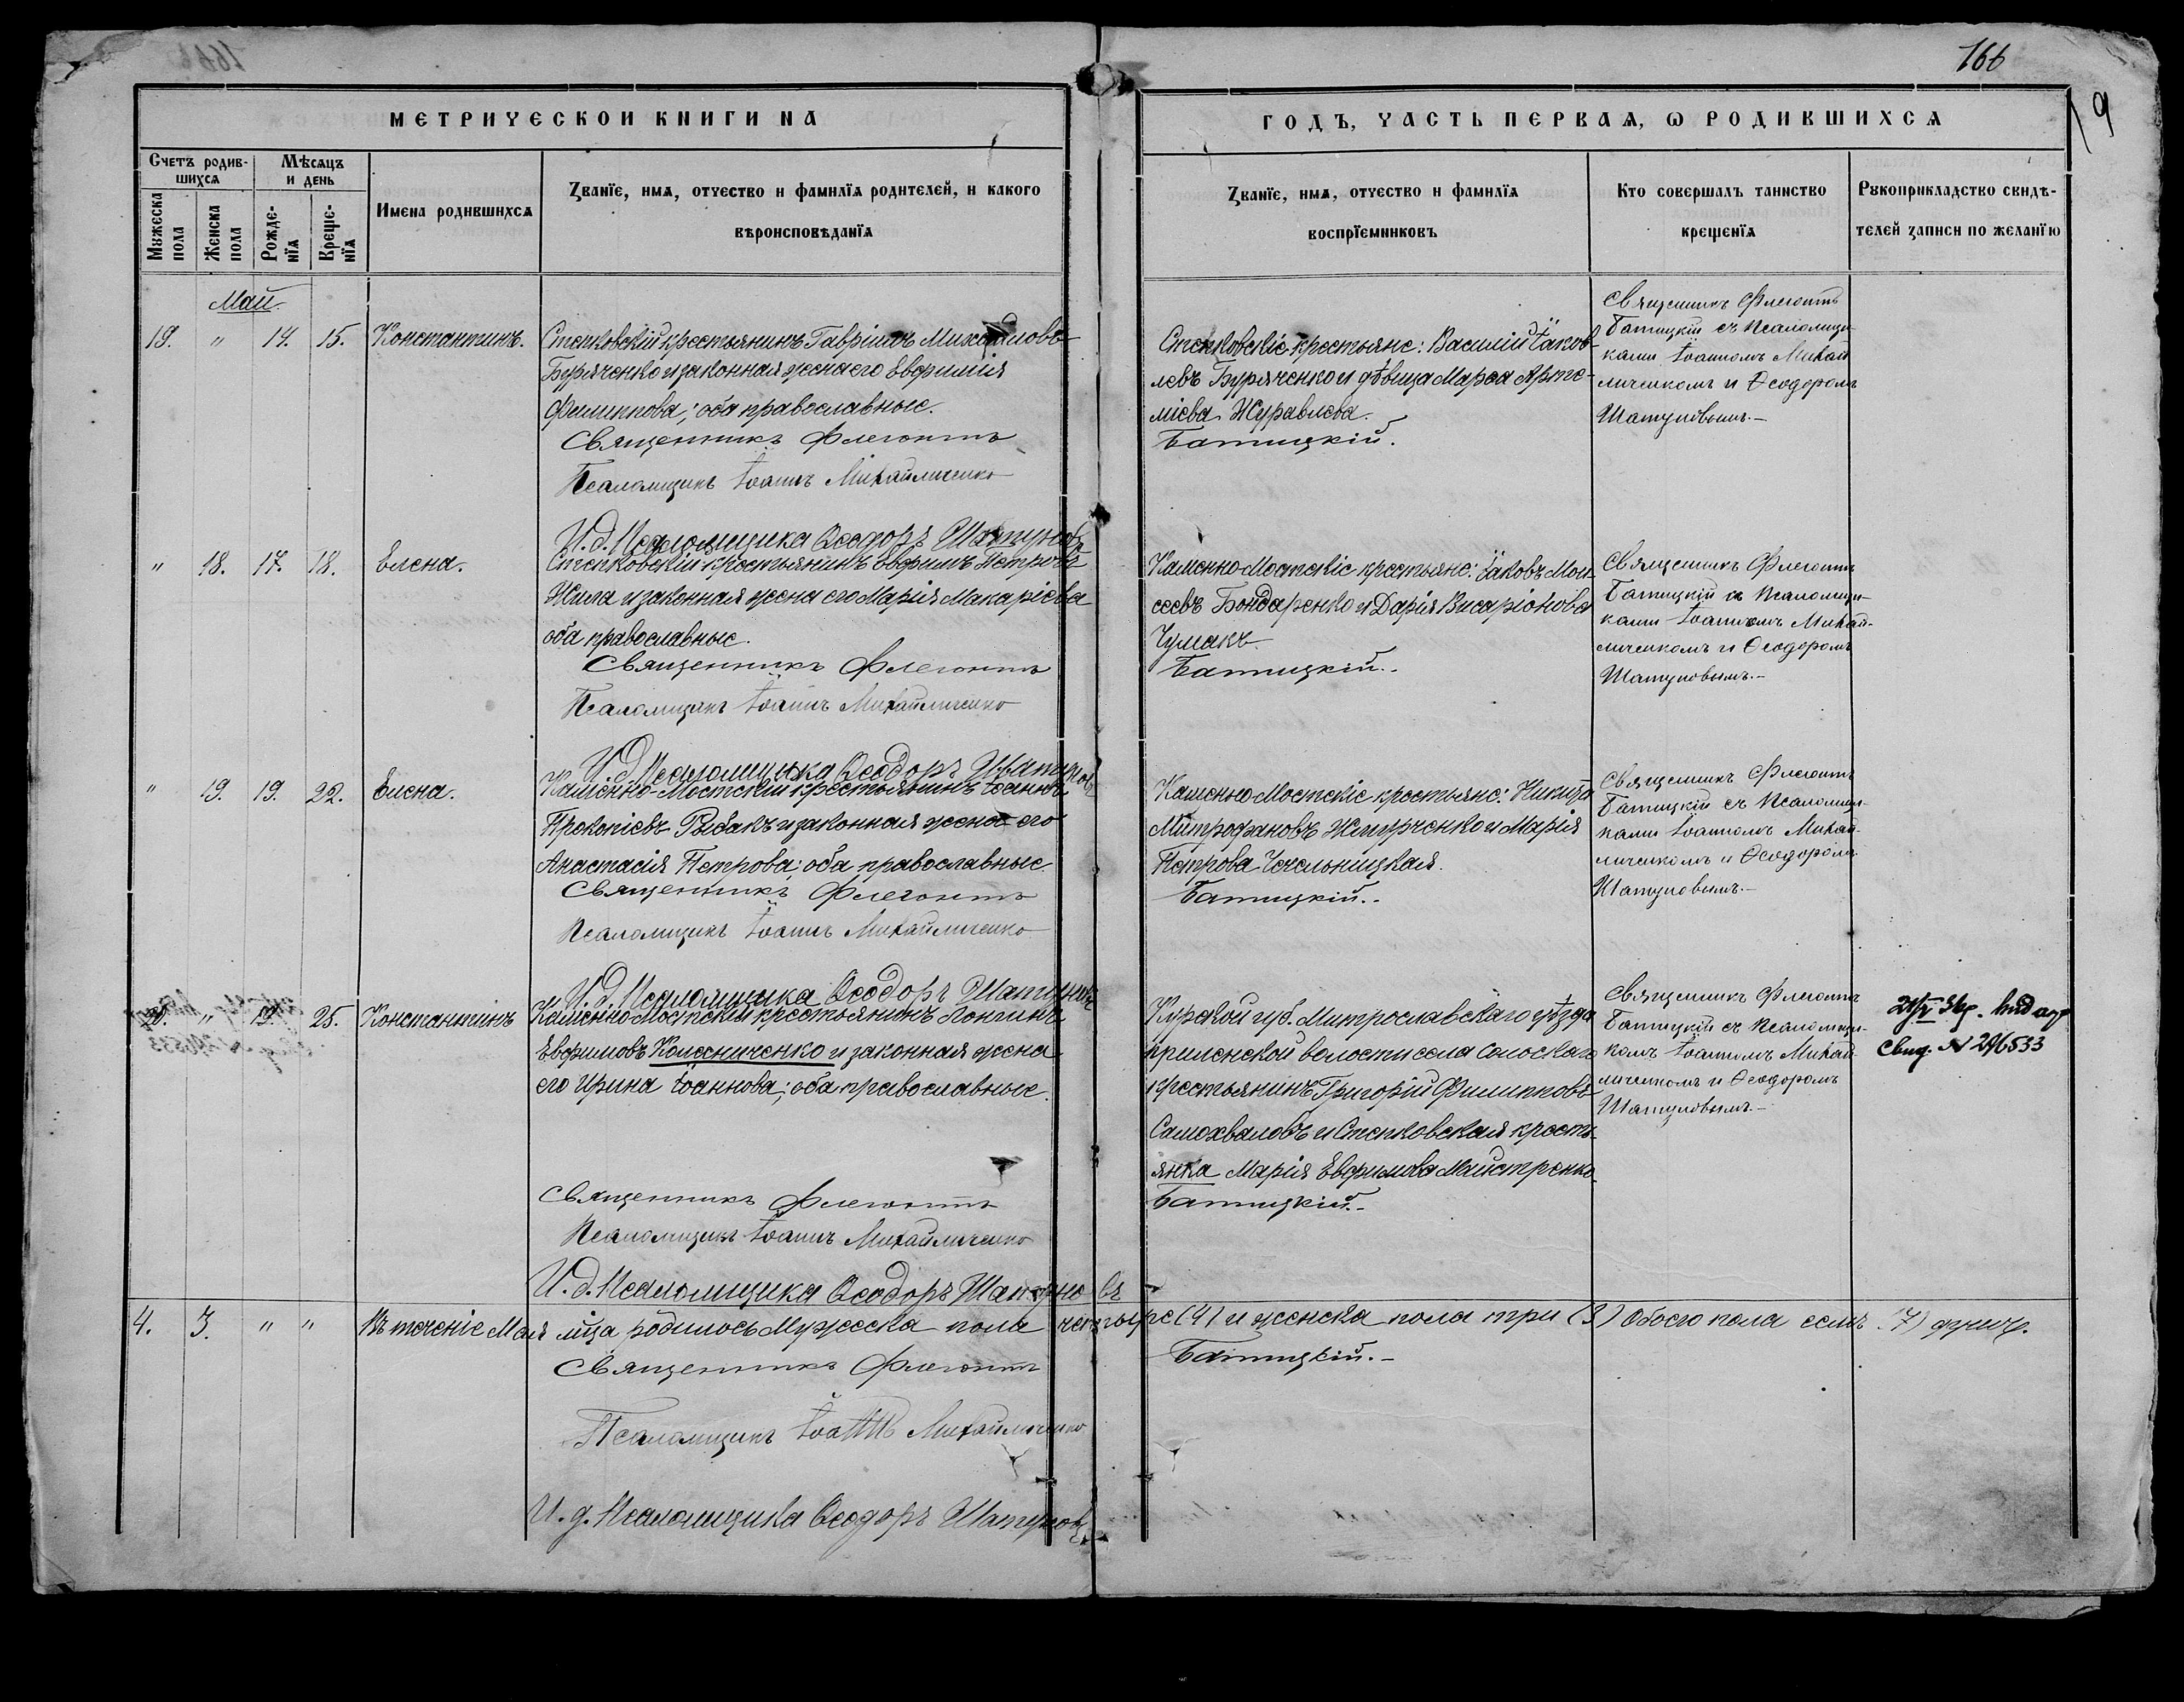 166
9
МЕТРИЧЕСКОЙ КНИГИ НА
ГОДЪ, ЧАСТЬ ПЕРВАЯ, Ѡ РОДИВШИХСЯ
Счетъ родив-
шихся
Мѣсяцъ
и день
Мужеска
пола
Женска
пола
Рожде-
нїя
Креще-
нїя
Имена родившихся
Званїе, имя, отчество и фамилїя родителей, и какого
вѣроисповѣданїя
Званїе, имя, отчество и фамилїя
воспрїемниковъ
Кто совершалъ таинство
крещенїя
Рукоприкладство свидѣ-
телей записи по желанїю
Май.
19. " 14. 15. Константинъ.
Степковскій крестьянинъ Гавріилъ Михайловъ
Буряченко и законная жена его Евфимія
Филиппова; оба православные.
Священникъ Флегонтъ
Псаломщикъ Іоаннъ Михайличенко
И.д. Псаломщика Ѳеодоръ Шатуновъ
Степковскіе крестьяне: Василій Іаков-
левъ Буряченко и дѣвица Марѳа Арте-
міева Журавлева.
Батицкій.
Священникъ Флегонтъ
Батицкій съ псаломщи-
ками Іоанномъ Михай
личенкомъ и Ѳеодоромъ
Шатуновымъ.-
" 18. 17. 18. Елена.
Степковскій крестьянинъ Евфимъ Петровъ
Жила и законная жена его Марія Макаріева
оба православные.
Священникъ Флегонтъ
Псаломщикъ Іоаннъ Михайличенко
И.д. Псаломщика Ѳеодоръ Шатуновъ
Каменно Мостскіе крестьяне: Іаковъ Мои-
сеевъ Бондаренко и Дарія Висаріонова
Чумакъ
Батицкій.-
Священникъ Флегонтъ
Батицкій съ псаломщи-
ками Іоанномъ Михай-
личенкомъ и Ѳеодоромъ
Шатуновымъ.-
" 19. 19. 22. Елена.
Каменно-Мостскій крестьянинъ Іоаннъ
Прокопіевъ Рыбакъ и законная жена его
Анастасія Петрова; оба православные.
Священникъ Флегонтъ
Псаломщикъ Іоаннъ Михайличенко
И.д. Псаломщика Ѳеодоръ Шатуновъ
Каменно Мостскіе крестьяне: Никита
Митрофановъ и Марія
Петрова Чечельницкая.
Батицкій.-
Священникъ Флегонтъ
Батицкій съ псаломщи-
ками Іоанномъ Михай-
личенкомъ и Ѳеодоромъ
Шатуновымъ.-
" 19. 25. Константинъ
Каменно Мостскій крестьянинъ Лонгинъ
Евфимовъ Колесниченко и законная жена
его Ирина Іоаннова; оба православные.
Священникъ Флегонтъ
Псаломщикъ Іоаннъ Михайличенко
И.д. Псаломщика Ѳеодоръ Шатуновъ
Курской губ. уѣзда
волости села
крестьянинъ Григорій Филипповъ
Самохваловъ и Степковская кресть-
янка Марія Евфимова Майстренко
Батицкій.-
Священникъ Флегонтъ
Батицкій съ псаломщи-
комъ Іоанномъ Михай-
личенкомъ и Ѳеодоромъ
Шатуновымъ.-
Свид. № 296533
4. 3. " " Въ теченіе Мая мца родилось Мужеска пола четыре (4) и женска пола три (3) Обоего пола семь 7) душъ.
Священникъ Флегонтъ
Батицкій.-
Псаломщикъ Іоаннъ Михайличенко
И.д. Псаломщика Ѳеодоръ Шатуновъ